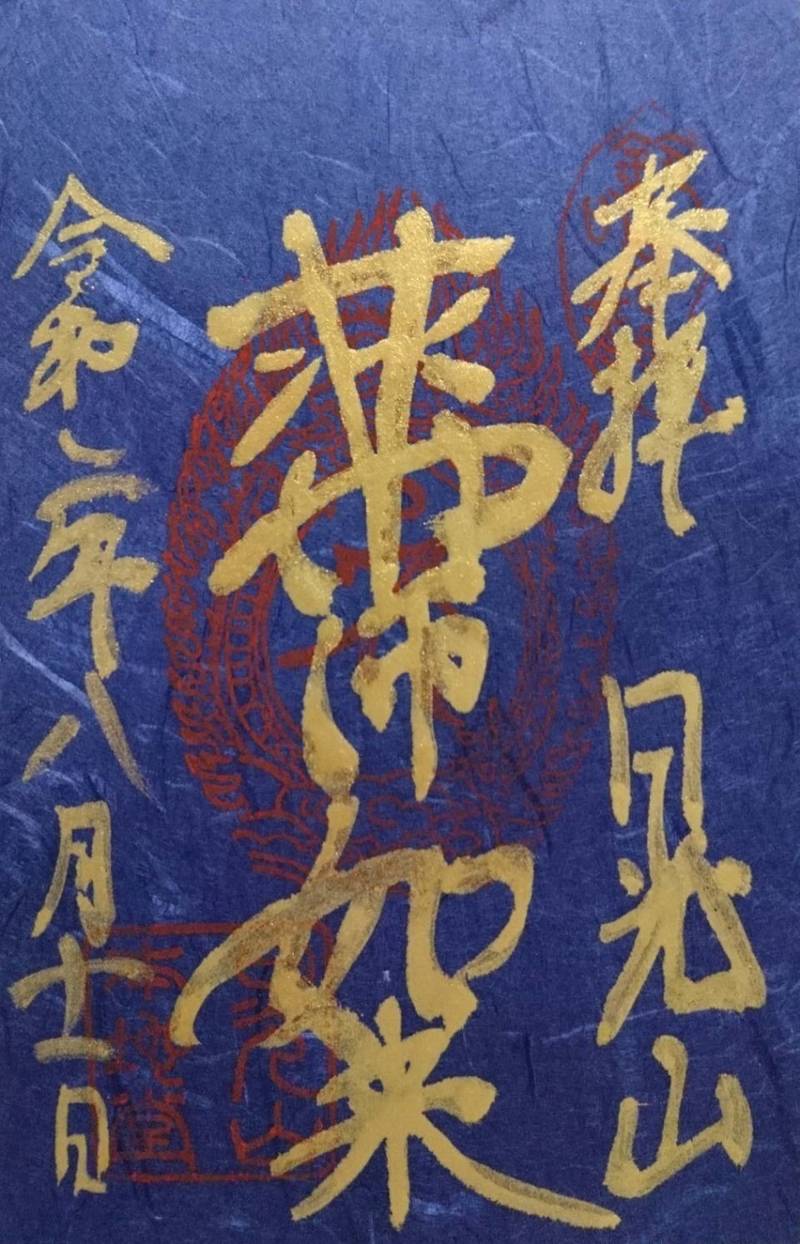 奉拝　日光山
薬師如来
令和二年八月十一日